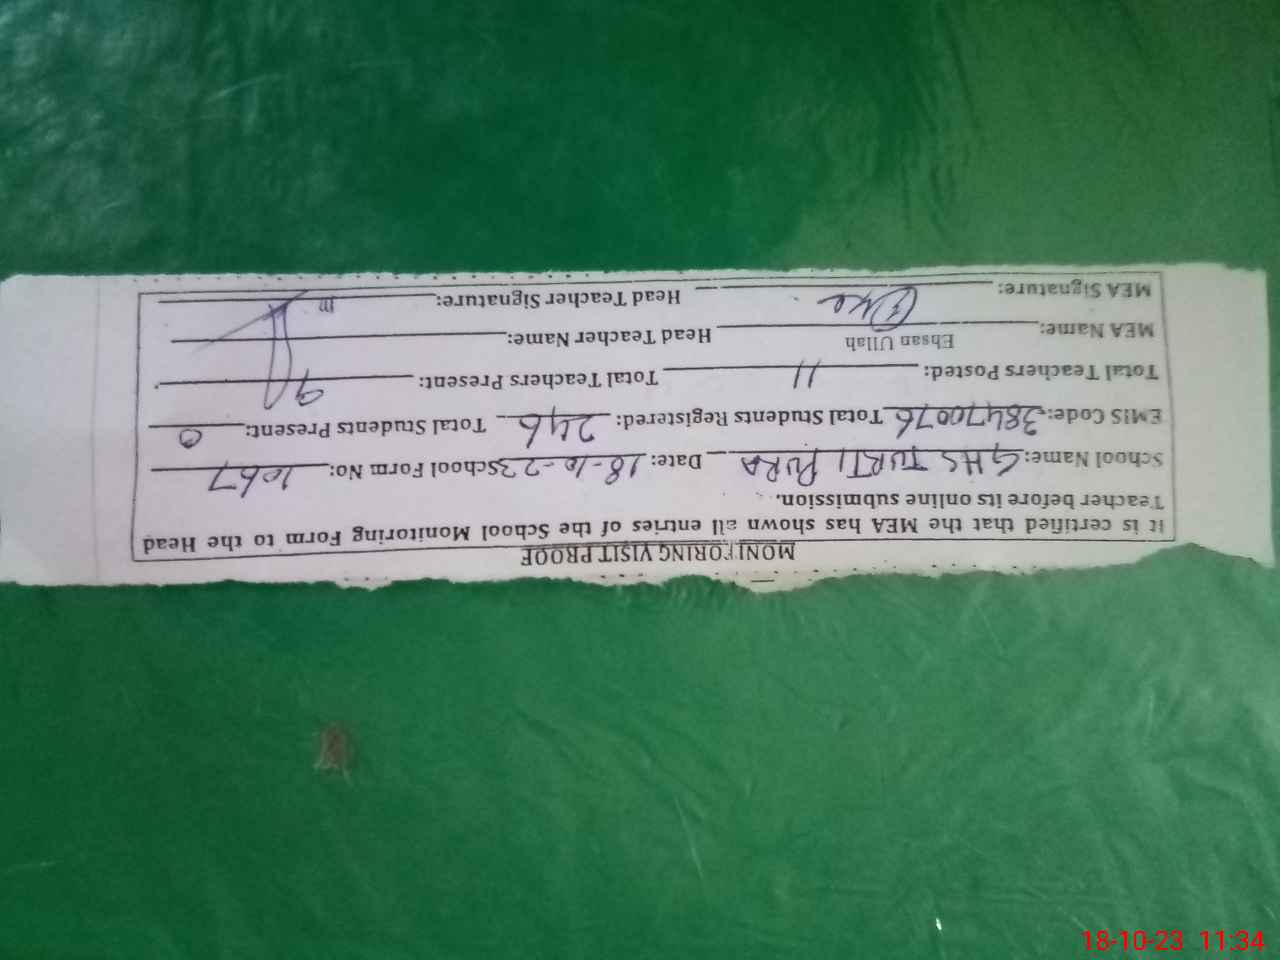 MONITORING VISIT PROOF
It is certified that the MEA has shown all entries of the School Monitoring Form to the Head
Teacher before its online submission.
School Name: GHS TURTI PURA Date: 18-10-23 School Form No: 1067
EMIS Code: 38470076 Total Students Registered: 246 Total Students Present: 0
Total Teachers Posted: 11 Total Teachers Present: 9
MEA Name: Ehsan Ullah Head Teacher Name:
MEA Signature: Head Teacher Signature:
18-10-23 11:34